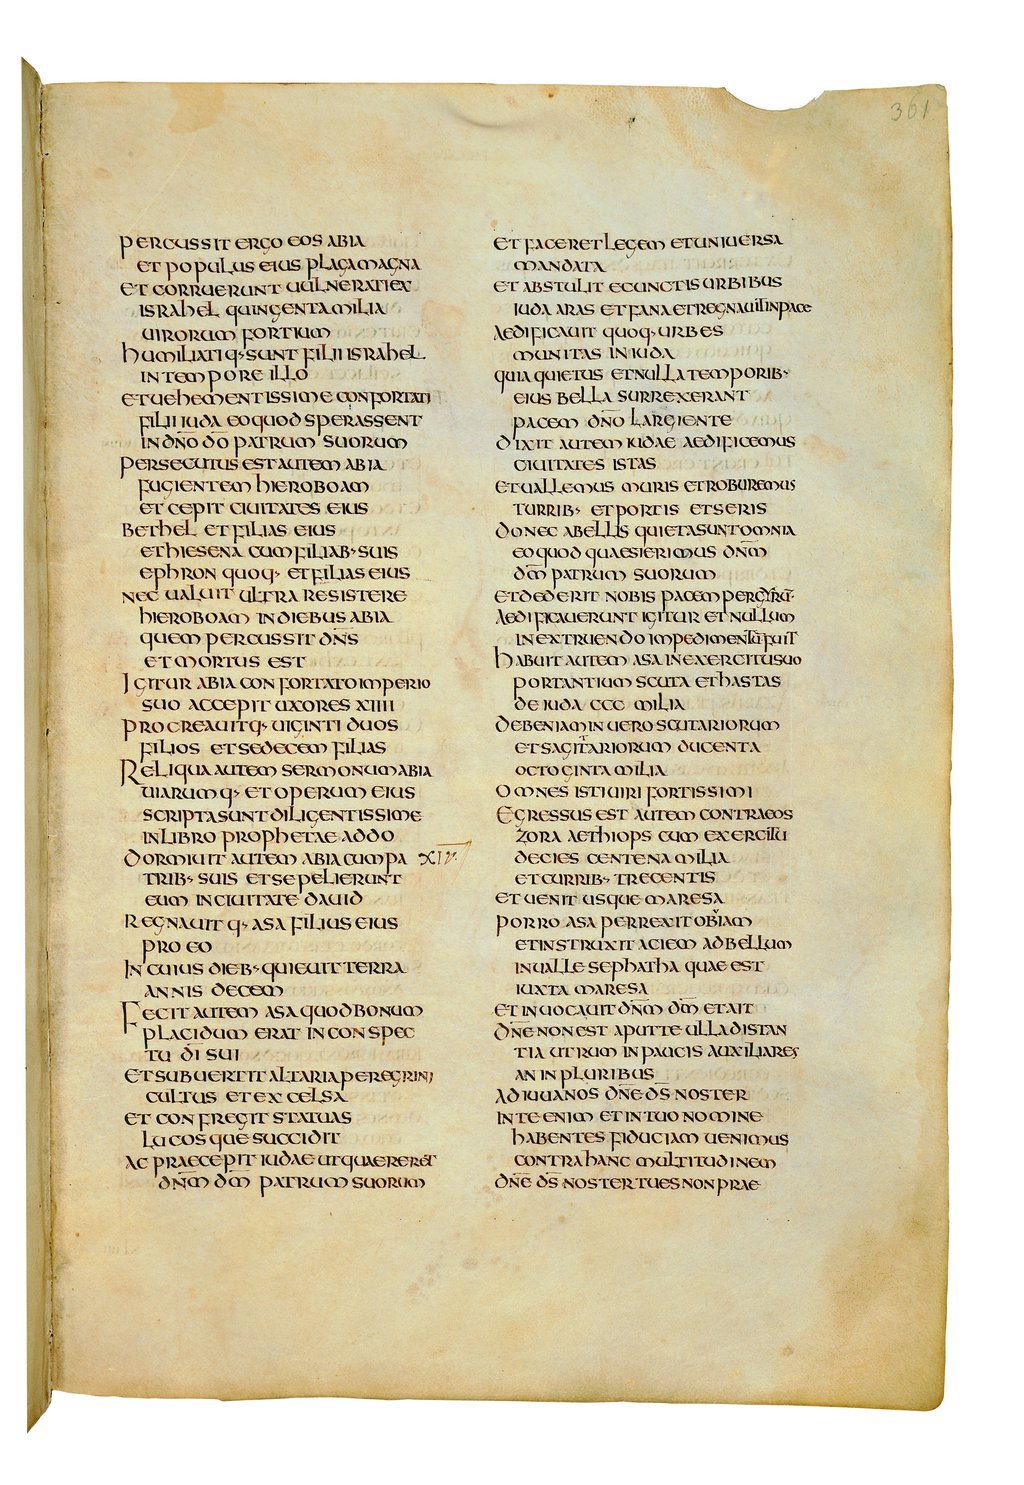 361
PERCUSSIT ERGO EOS ABIA
ET POPULUS EIUS PLAGA MAGNA
ET CORRUERUNT UULNERATI EX
ISRAHEL QUINGENTA MILIA
UIRORUM FORTIUM
HUMILIATIQ· SUNT FILII ISRAHEL
IN TEMPORE ILLO
ET UEHEMENTISSIME CONFORTATI
FILII IUDA EO QUOD SPERASSENT
IN DÑO DO PATRUM SUORUM
PERSECUTUS EST AUTEM ABIA
FUGIENTEM HIEROBOAM
ET CEPIT CIUITATES EIUS
BETHEL ET FILIAS EIUS
ET HIESENA CUM FILIAB· SUIS
EPHRON QUOQ· ET FILIAS EIUS
NEC UALUIT ULTRA RESISTERE
HIEROBOAM IN DIEBUS ABIA
QUEM PERCUSSIT DÑS
ET MORTUS EST
IGITUR ABIA CONFORTATO IMPERIO
SUO ACCEPIT UXORES XIIII
PROCREAUITQ· UIGINTI DUOS
FILIOS ET SEDECEM FILIAS
RELIQUA AUTEM SERMONUM ABIA
UIARUMQ· ET OPERUM EIUS
SCRIPTA SUNT DILIGENTISSIME
IN LIBRO PROPHETAE ADDO
DORMIUIT AUTEM ABIA CUM PA XIV
TRIB· SUIS ET SEPELIERUNT
EUM IN CIUITATE DAUID
REGNAUITQ· ASA FILIUS EIUS
PRO EO
IN CUIUS DIEB· QUIEUIT TERRA
ANNIS DECEM
FECIT AUTEM ASA QUOD BONUM
PLACIDUM ERAT IN CONSPEC
TU DĪ SUI
ET SUBUERTIT ALTARIA PEREGRINI
CULTUS ET EXCELSA
ET CONFREGIT STATUAS
LUCOSQUE SUCCIDIT
AC PRAECEPIT IUDAE UT QUAERERET
DÑM DM̄ PATRUM SUORUM
ET FACERET LEGEM ET UNIUERSA
MANDATA
ET ABSTULIT E CUNCTIS URBIBUS
IUDA ARAS ET FANA ET REGNAUIT IN PACE
AEDIFICAUIT QUOQ· URBES
MUNITAS IN IUDA
QUIA QUIETUS ET NULLA TEMPORIB·
EIUS BELLA SURREXERANT
PACEM DÑO LARGIENTE
DIXIT AUTEM IUDAE AEDIFICEMUS
CIUITATES ISTAS
ET UALLEMUS MURIS ET ROBUREMUS
TURRIB· ET PORTIS ET SERIS
DONEC A BELLIS QUIETA SUNT OMNIA
EO QUOD QUAESIERIMUS DÑM
DM̄ PATRUM SUORUM
ET DEDERIT NOBIS PACEM PER GYRŪ
AEDIFICAUERUNT IGITUR ET NULLUM
IN EXTRUENDO IMPEDIMENTŪ FUIT
HABUIT AUTEM ASA IN EXERCITU SUO
PORTANTIUM SCUTA ET HASTAS
DE IUDA CCC MILIA
DE BENIAMIN UERO SCUTARIORUM
ET SAGITTARIORUM DUCENTA
OCTOGINTA MILIA
OMNES ISTI UIRI FORTISSIMI
EGRESSUS EST AUTEM CONTRA EOS
ZORA AETHIOPS CUM EXERCITU
DECIES CENTENA MILIA
ET CURRIB· TRECENTIS
ET UENIT USQUE MARESA
PORRO ASA PERREXIT OBVIAM
ET INSTRUXIT ACIEM AD BELLUM
IN UALLE SEPHATHA QUAE EST
IUXTA MARESA
ET INUOCAUIT DÑM DM̄ ET AIT
DÑE NON EST APUT TE ULLA DISTAN
TIA UTRUM IN PAUCIS AUXILIARES
AN IN PLURIBUS
ADIUUA NOS DÑE DS̄ NOSTER
IN TE ENIM ET IN TUO NOMINE
HABENTES FIDUCIAM UENIMUS
CONTRA HANC MULTITUDINEM
DÑE DS̄ NOSTER TU ES NON PRAE